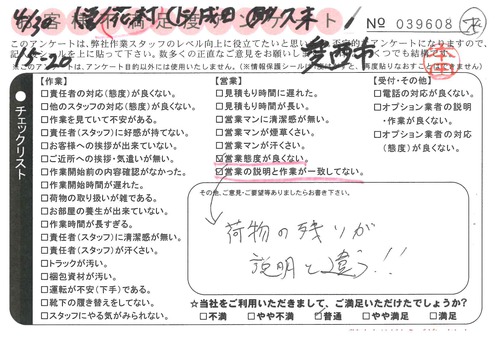 お客様満足度アンケート
No 039608
このアンケートは、弊社作業スタッフのレベル向上に役立てたいと思い
15-20
※このアンケートは、アンケート目的以外には使用いたしません。
チェックリスト
【作業】
□責任者の対応(態度)が良くない。
□他のスタッフの対応(態度)が良くない。
□作業を見ていて不安がある。
□責任者(スタッフ)に好感が持てない。
□お客様への挨拶が出来ていない。
□ご近所への挨拶・気遣いが無い。
□作業開始前の内容確認がなかった。
□作業開始時間が遅れた。
□荷物の取り扱いが雑である。
□お部屋の養生が出来ていない。
□作業時間が長すぎる。
□責任者(スタッフ)に清潔感が無い。
□責任者(スタッフ)が汗くさい。
□トラックが汚い。
□梱包資材が汚い。
□運転が不安(下手)である。
□靴下の履き替えをしてない。
□スタッフにやる気がみられない。
【営業】
□見積もり時間に遅れた。
□見積もり時間が長い。
□営業マンに清潔感が無い。
□営業マンが煙草くさい。
□営業マンが汗くさい。
☑営業態度が良くない。
☑営業の説明と作業が一致してない。
【受付・その他】
□電話の対応が良くない。
□オプション業者の説明
・作業が良くない。
□オプション業者の対応
(態度)が良くない。
その他、ご意見・ご要望等ありましたらお書き下さい。
荷物の残りが
説明と違う!!
☆当社をご利用いただきまして、ご満足いただけたでしょうか?
□不満 □やや不満 ☑普通 □やや満足 □満足